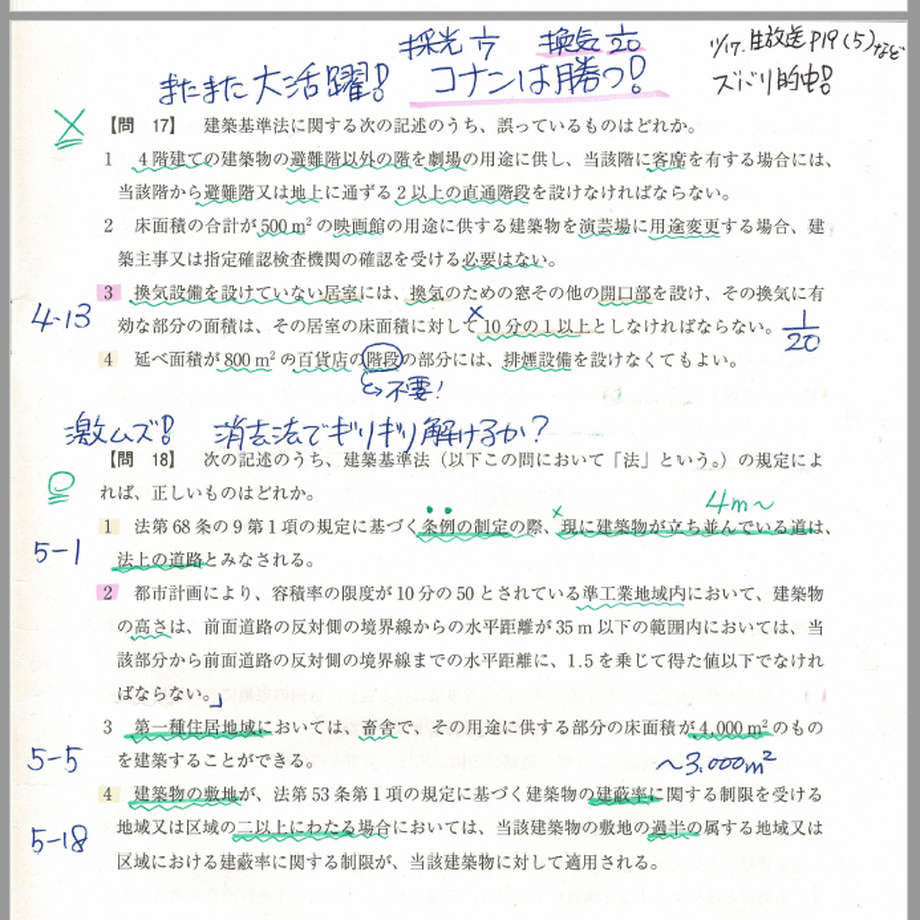 採光 1/7 換気 1/20
11/17.生放送 P19(5)など
またまた大活躍! コナンは勝つ!
ズバリ的中!
×
【問 17】 建築基準法に関する次の記述のうち、誤っているものはどれか。
1 4階建ての建築物の避難階以外の階を劇場の用途に供し、当該階に客席を有する場合には、
当該階から避難階又は地上に通ずる2以上の直通階段を設けなければならない。
2 床面積の合計が500m²の映画館の用途に供する建築物を演芸場に用途変更する場合、建
築主事又は指定確認検査機関の確認を受ける必要はない。
3 換気設備を設けていない居室には、換気のための窓その他の開口部を設け、その換気に有
4-13
×
効な部分の面積は、その居室の床面積に対して10分の1以上としなければならない。 1/20
4 延べ面積が800m²の百貨店の階段の部分には、排煙設備を設けなくてもよい。
↪不要!
激ムズ! 消去法でギリギリ解けるか?
【問 18】 次の記述のうち、建築基準法(以下この問において「法」という。)の規定によ
○
れば、正しいものはどれか。
4m~
×
1 法第68条の9第1項の規定に基づく条例の制定の際、現に建築物が立ち並んでいる道は、
5-1
法上の道路とみなされる。
2 都市計画により、容積率の限度が10分の50とされている準工業地域内において、建築物
の高さは、前面道路の反対側の境界線からの水平距離が35m以下の範囲内においては、当
該部分から前面道路の反対側の境界線までの水平距離に、1.5を乗じて得た値以下でなけれ
ばならない。」
3 第一種住居地域においては、畜舎で、その用途に供する部分の床面積が4,000m²のもの
5-5
を建築することができる。 ~3,000m²
4 建築物の敷地が、法第53条第1項の規定に基づく建築物の建蔽率に関する制限を受ける
5-18
地域又は区域の二以上にわたる場合においては、当該建築物の敷地の過半の属する地域又は
区域における建蔽率に関する制限が、当該建築物に対して適用される。